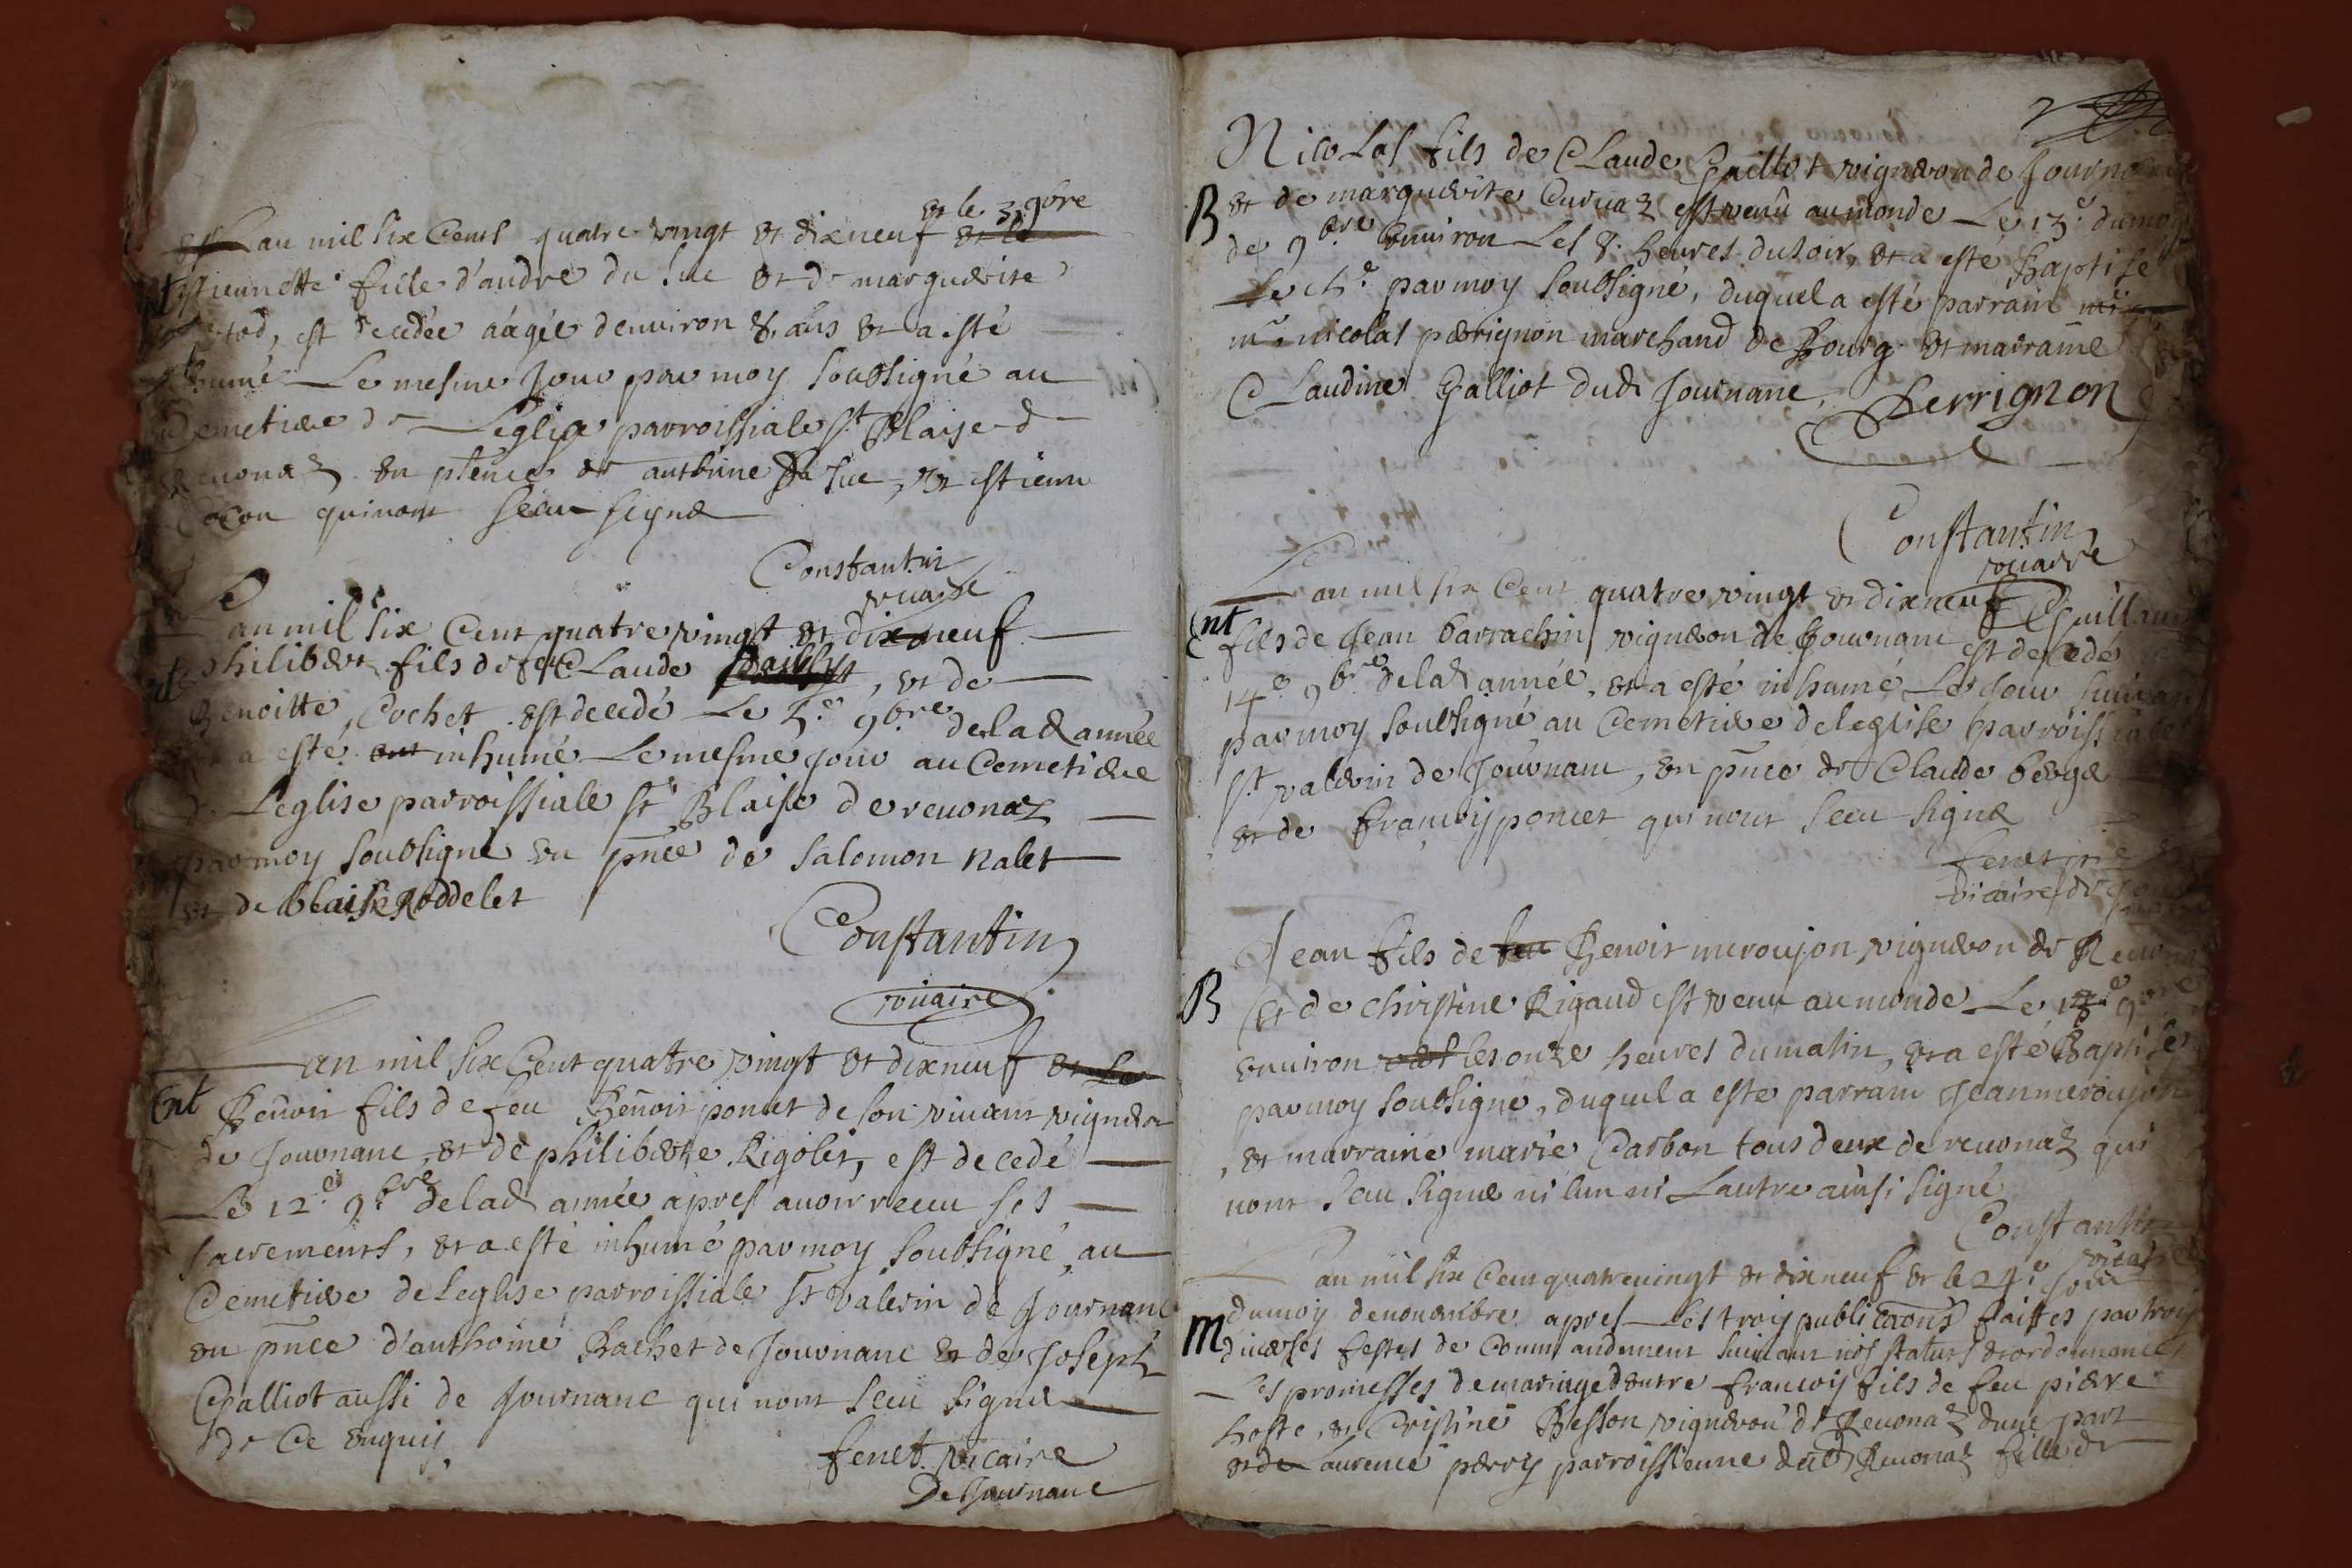 et le 3e 9bre
Lan mil six Cents quatre vingt et dixneuf et le
Estiennette fille d'andre du suc et de marguerite
est decedée aágée denviron 8. ans et a esté
Le mesme Jour par moy soubsigné au
Cemetiere de Leglise parroissiale St Blaise de
Revonaz en pnce de anthoine Du suc, et estienne
qui nont sceau signe
Constantin
vicaire
Lan mil six Cent quatre vingt et dixneuf
philibert fils de feu Claude, et de
Benoitte Cochet est decedé Le 5e 9bre de lad année
a esté inhumé Le mesme jour au Cemetiere
de Leglise parroissiale St Blaise de revonaz
par moy soubsigné en pnce de salomon nalet
et de blaise Roddelet
Constantin
vicaire
Lan mil six Cent quatre vingt et dixneuf et Le
Ent Benoit fils de feu Benoit poncet de son vivant vigneron
de Journanc, et de philiberte Rigolet, est decedé
Le 12e 9bre de lad année apres avoir receu ses
sacrements, et a esté inhumé par moy soubsigné au
Cemetiere de Leglise parroissiale St valerin de Journanc
en pnce d'anthoine Bachet de Journanc et de Joseph
Galliot aussi de Journanc qui nont sceu signer
de Ce enquis.
fenet vicaire
De Journanc
2
Nicolas fils de Claude Gaillot vigneron de Journanc
B et de marguerite Curvaz est venû au monde Le 13e du moys
de 9bre environ Les 8. heures du soir, et a esté Baptise
Le par moy soubsigné, duquel a esté parrain
mre nicolas perrignon marchand de Bourg et marraine
Claudine Galliot dud Journanc. Perrignon
Constantin
vicaire
Lan mil six Cent quatre vingt et dixneuf Guillaume
Ent fils de Jean barrachin vigneron de Journanc est decedé
14e 9bre de lad année, et a esté inhumé Le Jour suivant
par moy soubsigné au Cemetiere de leglise parroissiale
St valerin de Journanc, en pnce de Claude berge
et de françoys poncet qui nont sceu signe
fenet
vicaire de
Jean fils de feu Benoit meroujon vigneron de Revonaz
B et de christine Rigaud est venu au monde Le 18e 9bre
environ les onze heures du matin, et a esté Baptisé
par moy soubsigné, duquel a este parrain Jean meroujon
, et marraine marie Carbon tous deux de revonaz qui
nont sceu signe ni lun ni Lautre ainsi signé
Constantin
vicaire
Lan mil six Cent quatrevingt et dixneuf et le 24e jour
du moy de novembre apres Les troys publicaons faittes par troys
M diverses festes de Commandement suivant nos statuts et ordonnances
Les promesses de mariage dentre françoys fils de feu pierre
hoste, et Cristine Besson vigneron de Revonaz dune part
et de Laurence perry parroissienne dud Revonaz fille de